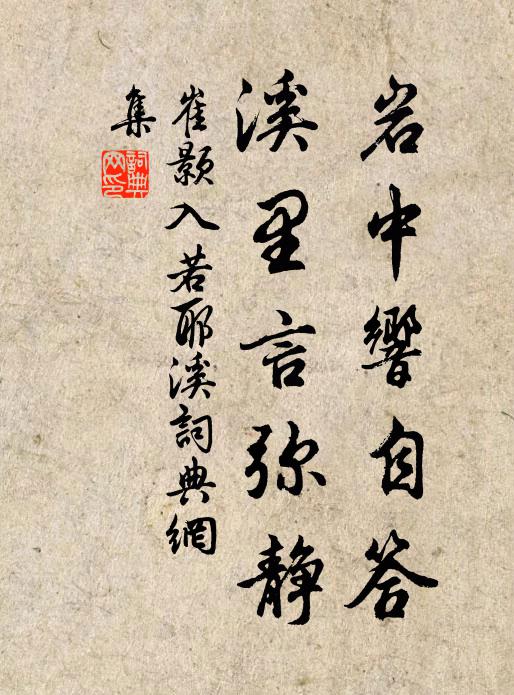 岩中響自答
溪里言弥静
崔颢入若耶溪詞典網
集
詞典
网印